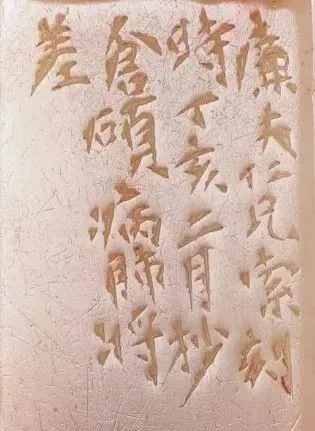 廉夫仁兄索刻
時丁亥二月抄
倉碩病肺將
差